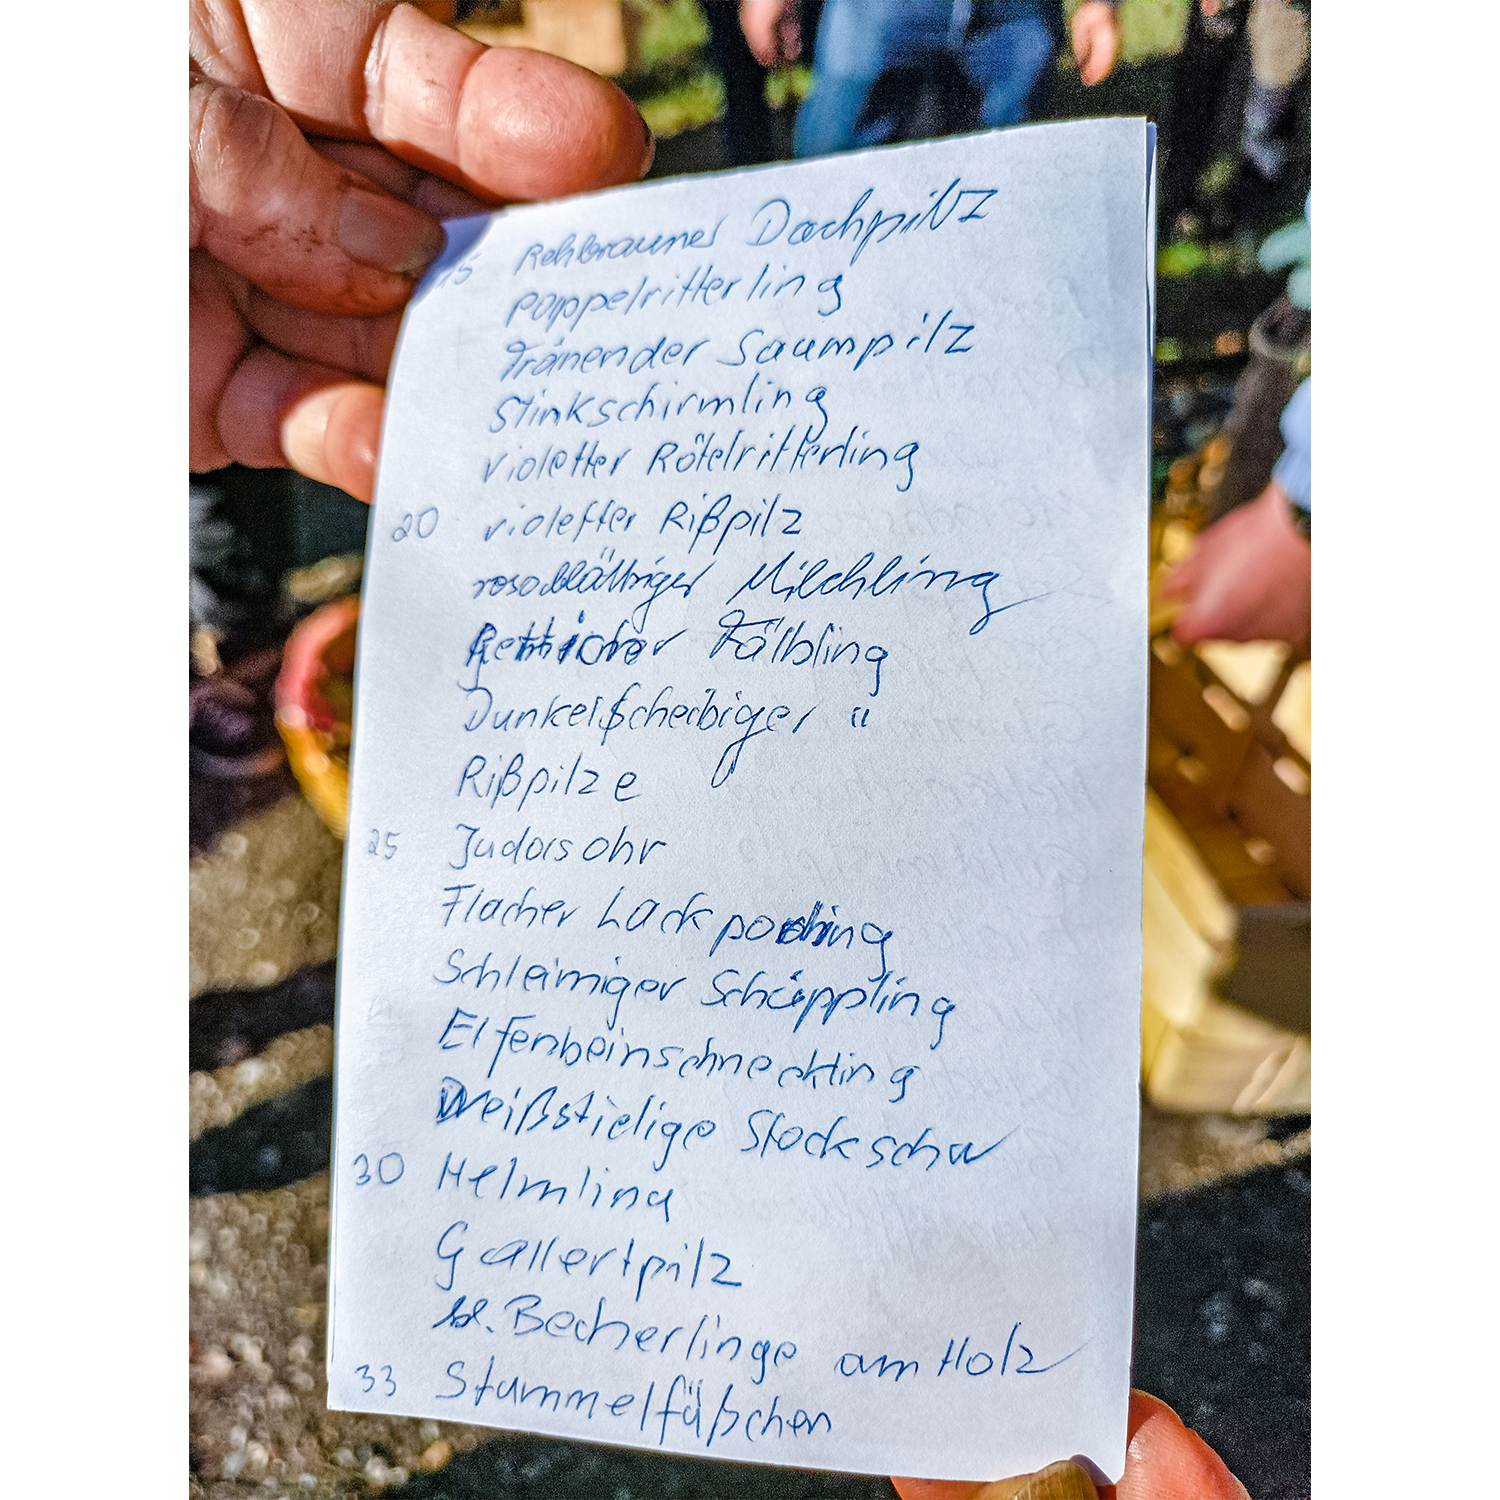 15 Rehbrauner Dachpilz
Pappelritterling
Tränender Saumpilz
Stinkschirmling
violetter Rötelritterling
20 violetter Rißpilz
rosablättriger Milchling
Rettich Fälbling
Dunkelscheibiger "
Rißpilze
25 Judasohr
Flacher Lackporling
Schleimiger Schüppling
Elfenbeinschneckling
Weißstielige Stockschw
30 Helmling
Gallertpilz
bl. Becherlinge am Holz
33 Stummelfüßchen